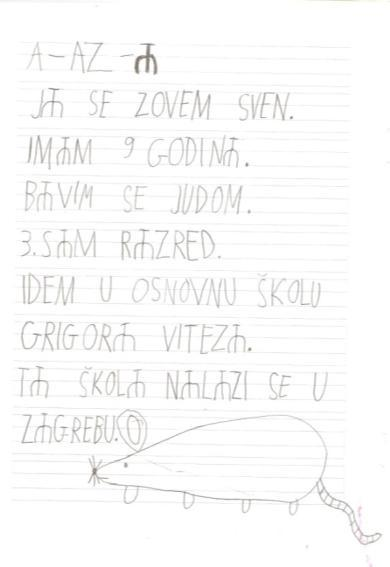 A-AZ-Ⰰ
JⰀ SE ZOVEM SVEN.
IMⰀM 9 GODINⰀ.
BⰀVIM SE JUDOM.
3.SⰀM RⰀZRED.
IDEM U OSNOVNU ŠKOLU
GRIGORⰀ VITEZⰀ.
TⰀ ŠKOLⰀ NⰀLⰀZI SE U
ZⰀGREBU.